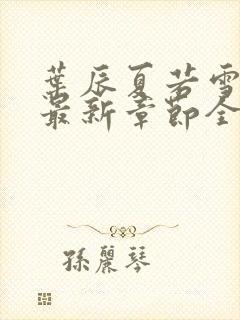 葉辰夏若雪
最新章節全
孫麗琴